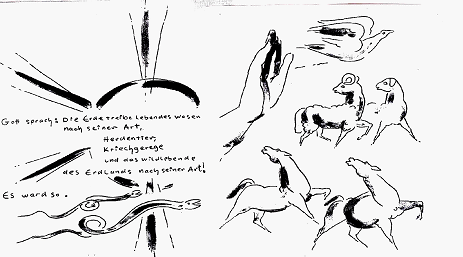 Gott sprach: Die Erde treibe lebendes wesen
nach seiner Art,
Herdentier,
Kriechgerege
und das wildlebende
des Erdlands nach seiner Art!
Es ward so.